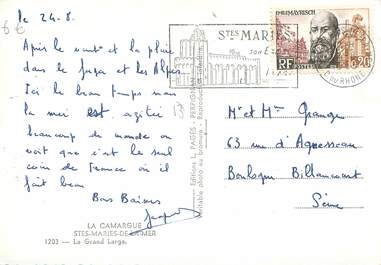 le 24-8.
6€
Après le vent et la pluie
dans le Jura et les Alpes
Ici le beau temps mais
la mer est agitée
beaucoup de monde on
voit que c'est le seul
coin de France où il
fait beau
Bons Baisers
LA CAMARGUE
STES-MARIES-DE-LA-MER
1203 — Le Grand Large.
Editions L. PAGES - PERPIGNAN
Véritable photo au bromure - Reproduction interdite
STES MARIES
SON E
PH. MAYRISCH
RF POSTES 0,20
DU RHONE
Mr et Mme Grange
63 rue d'Aguesseau
Boulogne Billancourt
Seine